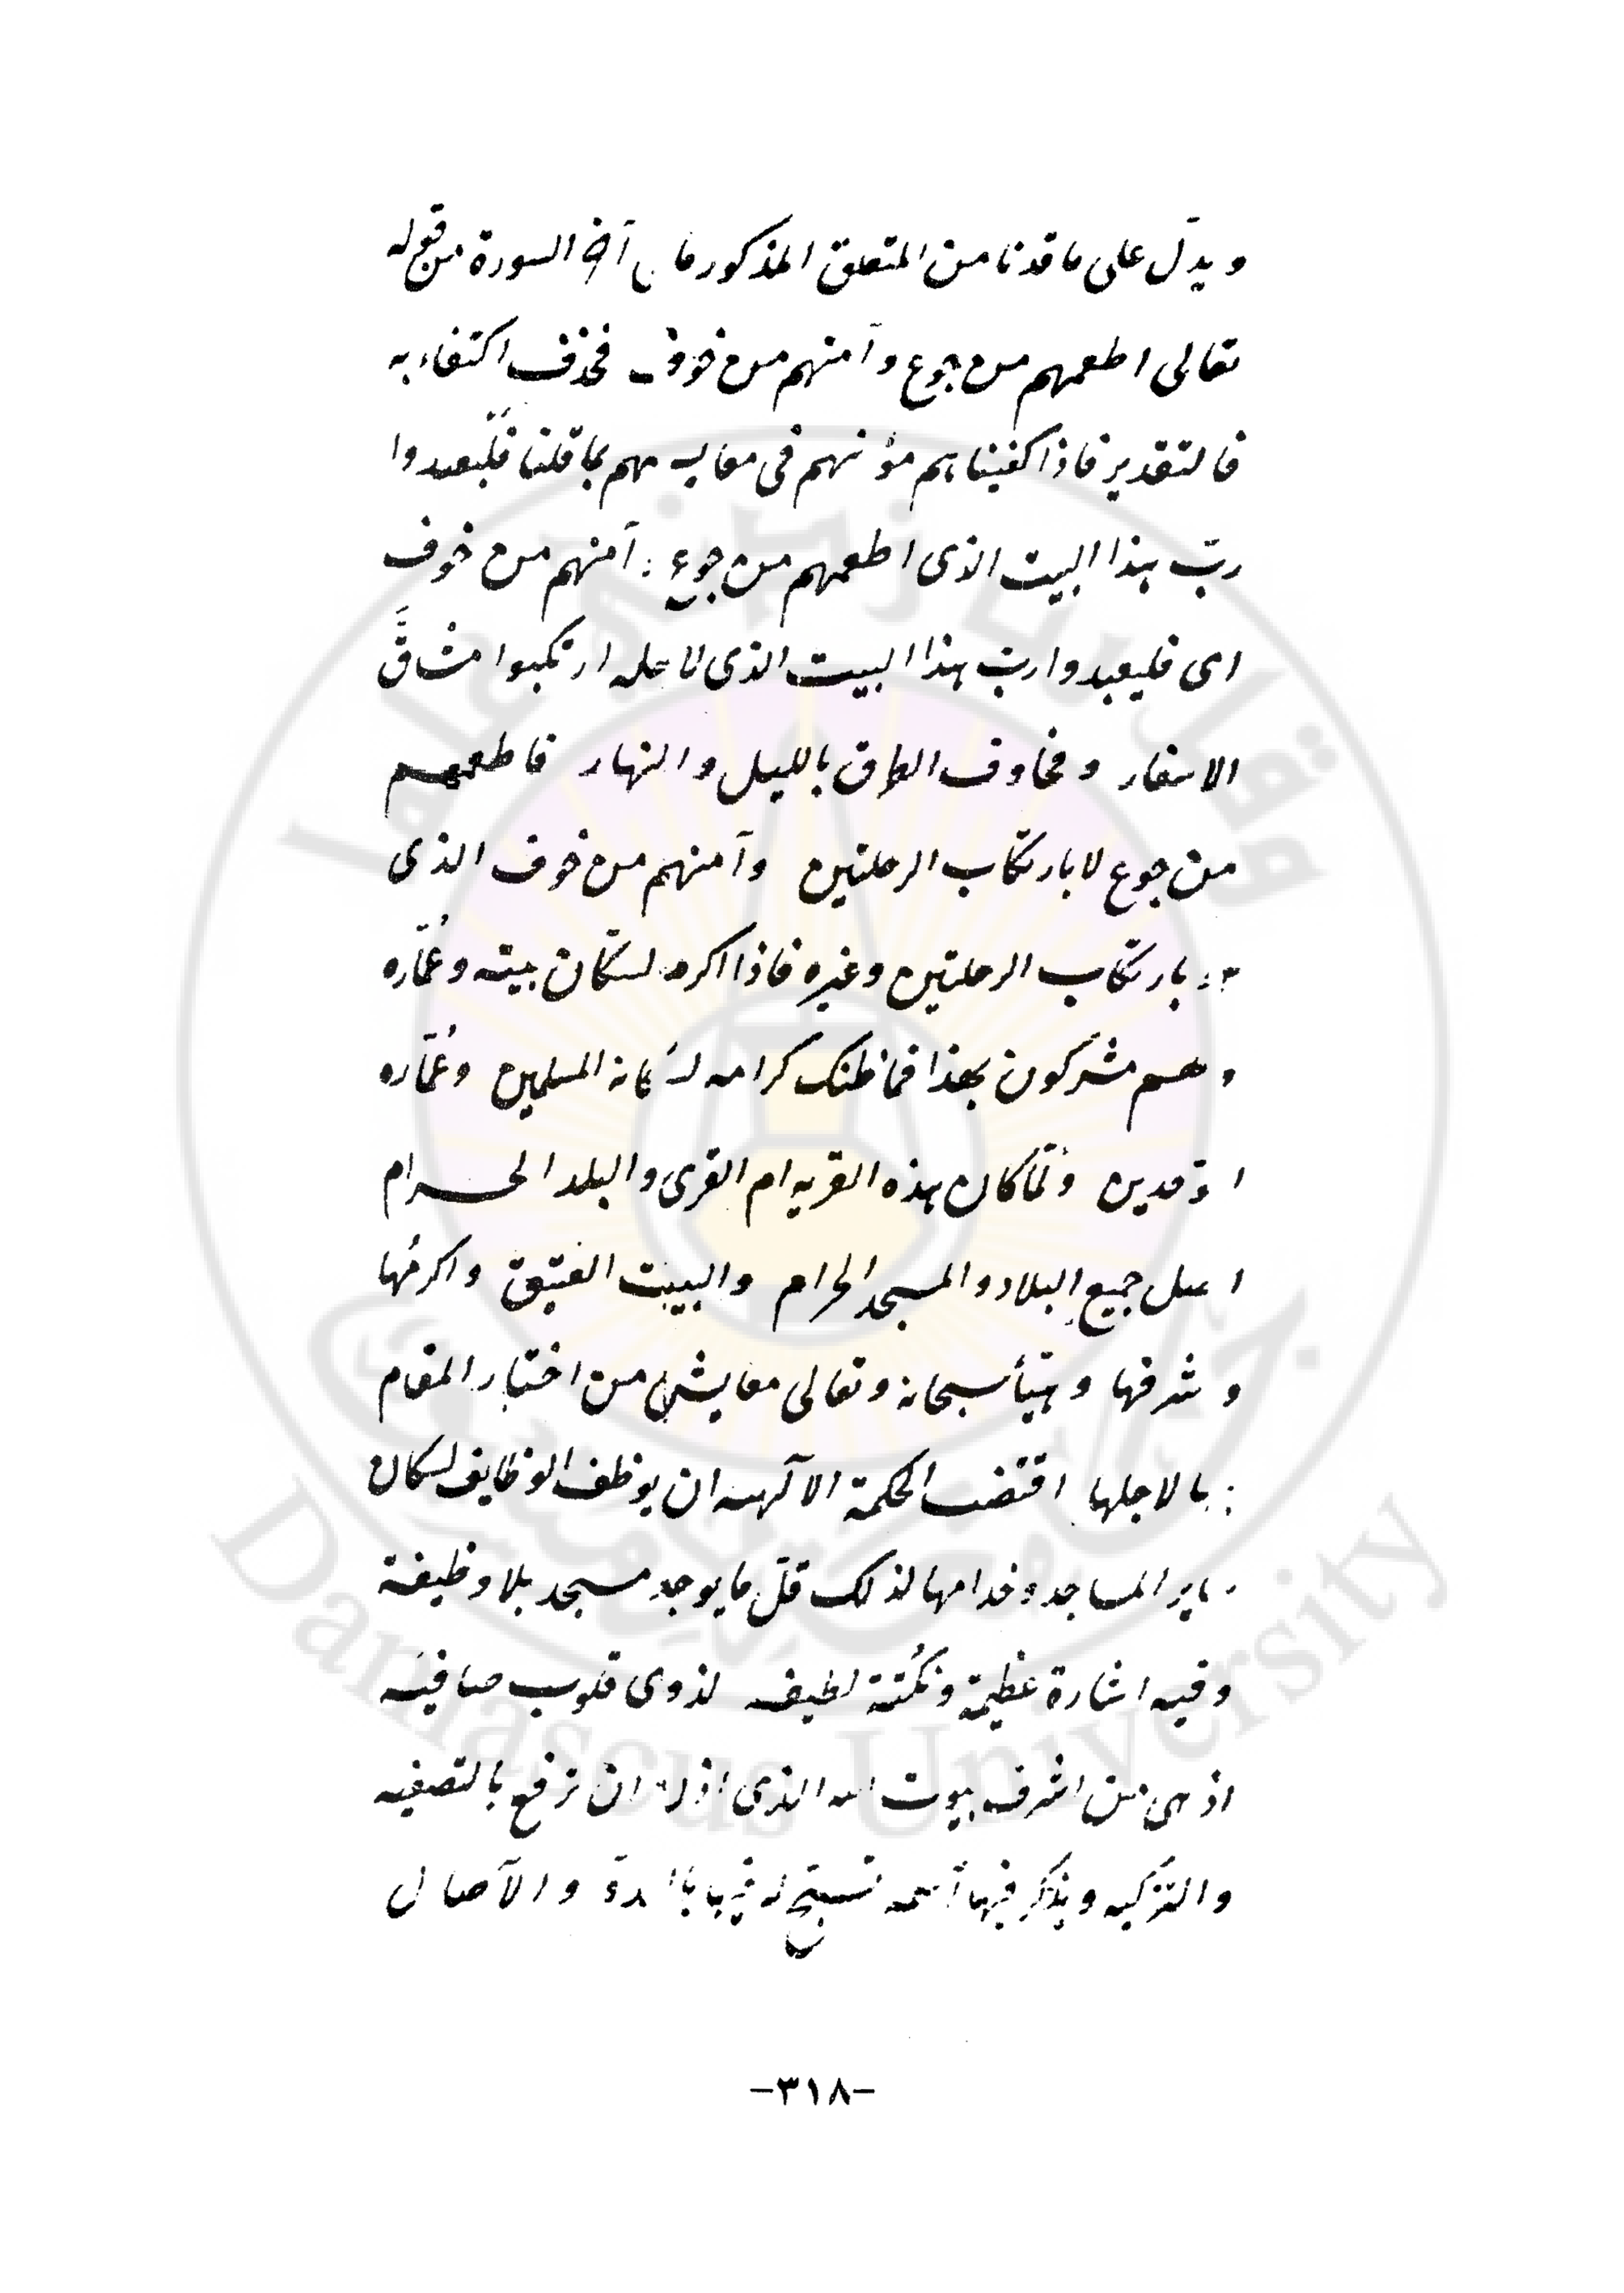 ويدلّ على ما قدنا من المتعلق المذكور ما آخر السورة من قوله
تعالى اطعمهم من جوع وآمنهم من خوف فحذف اكتفاء به
فالتقدير فاذا كفيناهم مؤنتهم فى معايشهم بما قلنا فليعبدوا
ربّ هذا البيت الذى اطعمهم من جوع وآمنهم من خوف
اى فليعبدوا ربّ هذا البيت الذى لاجله ارتكبوا مشاقَّ
الاسفار ومخاوف الطرق بالليل والنهار فاطعمهم
من جوع لا بارتكاب الرحلتين وآمنهم من خوف الذى
بارتكاب الرحلتين وغيره فاذا اكرم لسكّان بيته وعُمّاره
وهم مشركون بهذا فما ظنك كرامه لسكانه المسلمين وعُمّاره
ولمّا كان هذه القريه ام القرى والبلد الحرام
جميع البلاد والمسجد الحرام والبيت العتيق واكرمُها
وشرفها وهيّأ سبحانه وتعالى معايش من اختار المقام
بها لاجلها اقتضت الحكمة الآلهيه ان يوظف الوظايف لسكان
ساير المساجد وخدامها لذلك قلّ ما يوجد مسجد بلا وظيفة
وفيه اشارة عظيمة ونكُتة لطيفه لذوى قلوب صافيه
اذ هى من اشرف بيوت الله الذى اذن ان ترفع بالتصفيه
والتزكيه ويذكر فيها اسمه تسبّح له فيها والآصال
-٣١٨-
مقابلات زكي علما
جامعة دمشق
Damascus University